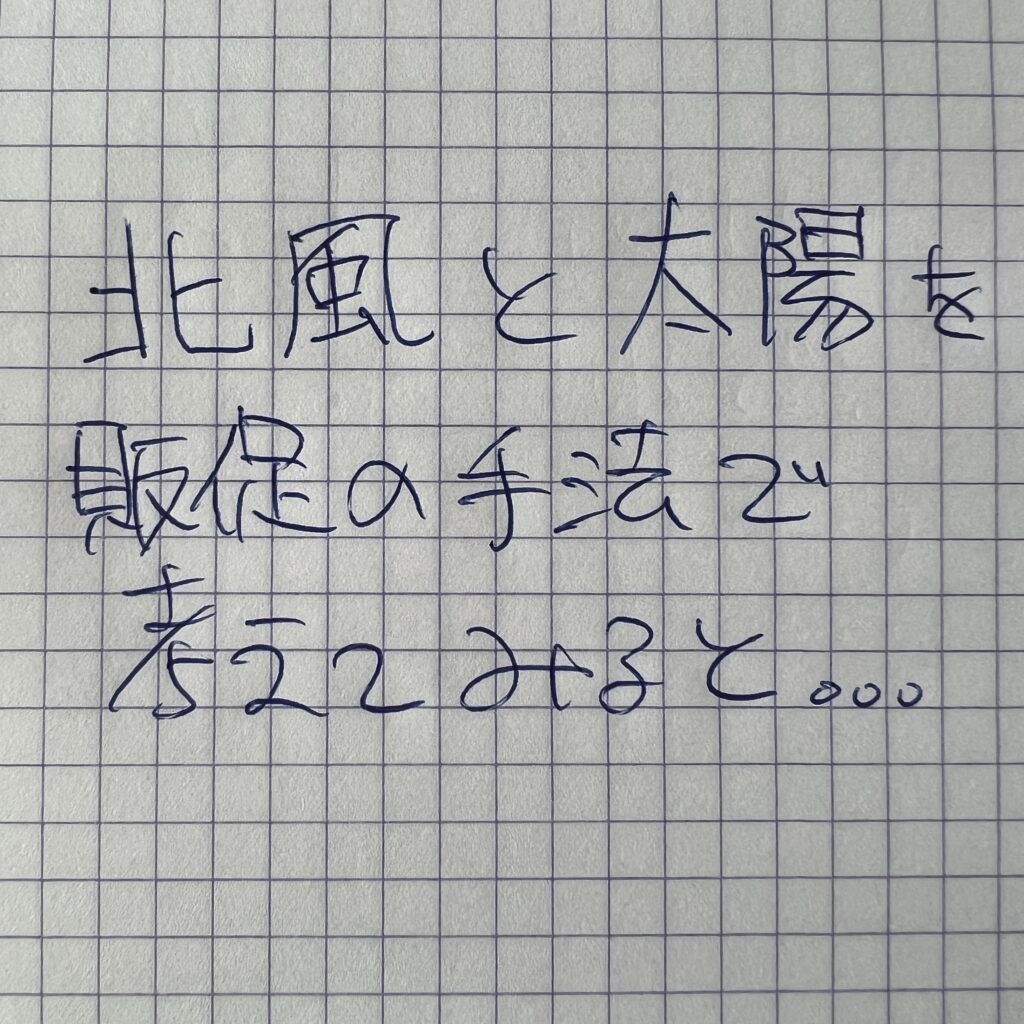 北風と太陽を
販促の手法で
考えてみると。。。